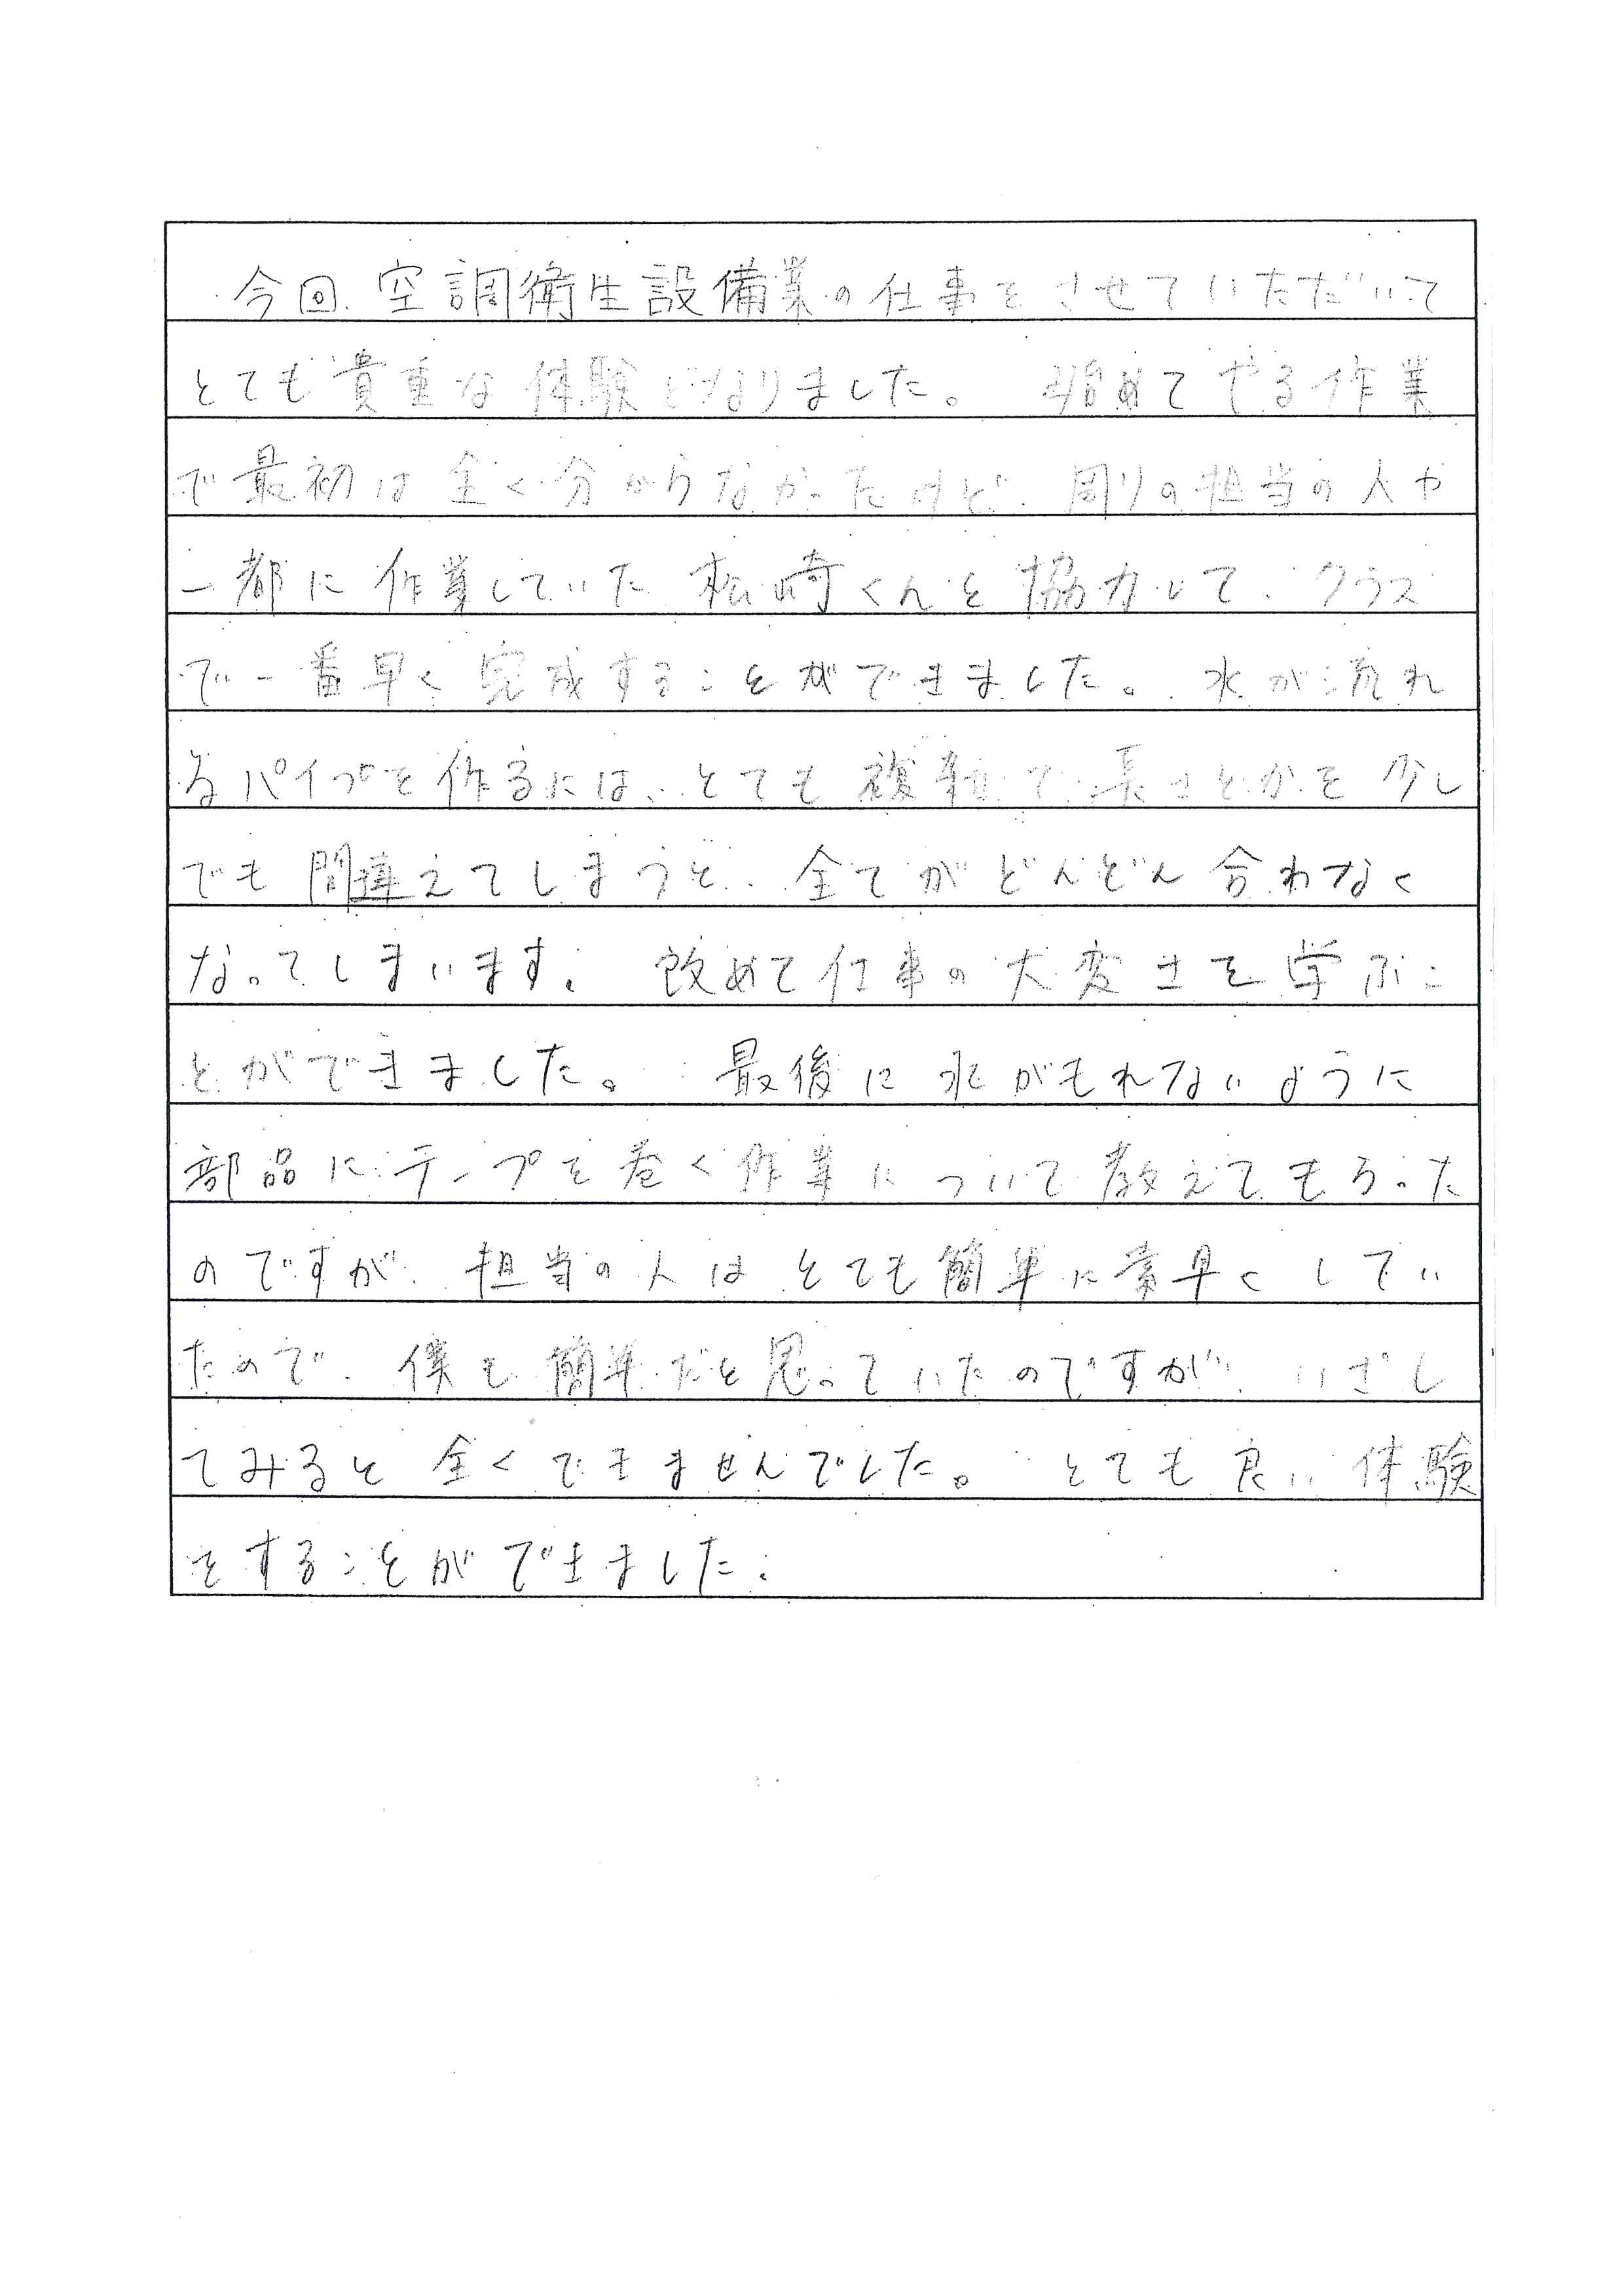 今回、空調衛生設備業の仕事をさせていただいて
とても貴重な体験となりました。始めてやる作業
で最初は全く分からなかったけど、周りの担当の人や
一都に作業していた松崎くんと協力して、クラス
で一番早く完成することができました。水が流れ
るパイプを作るには、とても複雑で長さとかを少し
でも間違えてしまうと、全てがどんどん合わなく
なってしまいます。改めて仕事の大変さを学ぶこ
とができました。最後に水がもれないように
部品にテープを巻く作業について教えてもらった
のですが、担当の人はとても簡単に素早くしてい
たので、僕も簡単だと思っていたのですが、いざし
てみると全くできませんでした。とても良い体験
をすることができました。